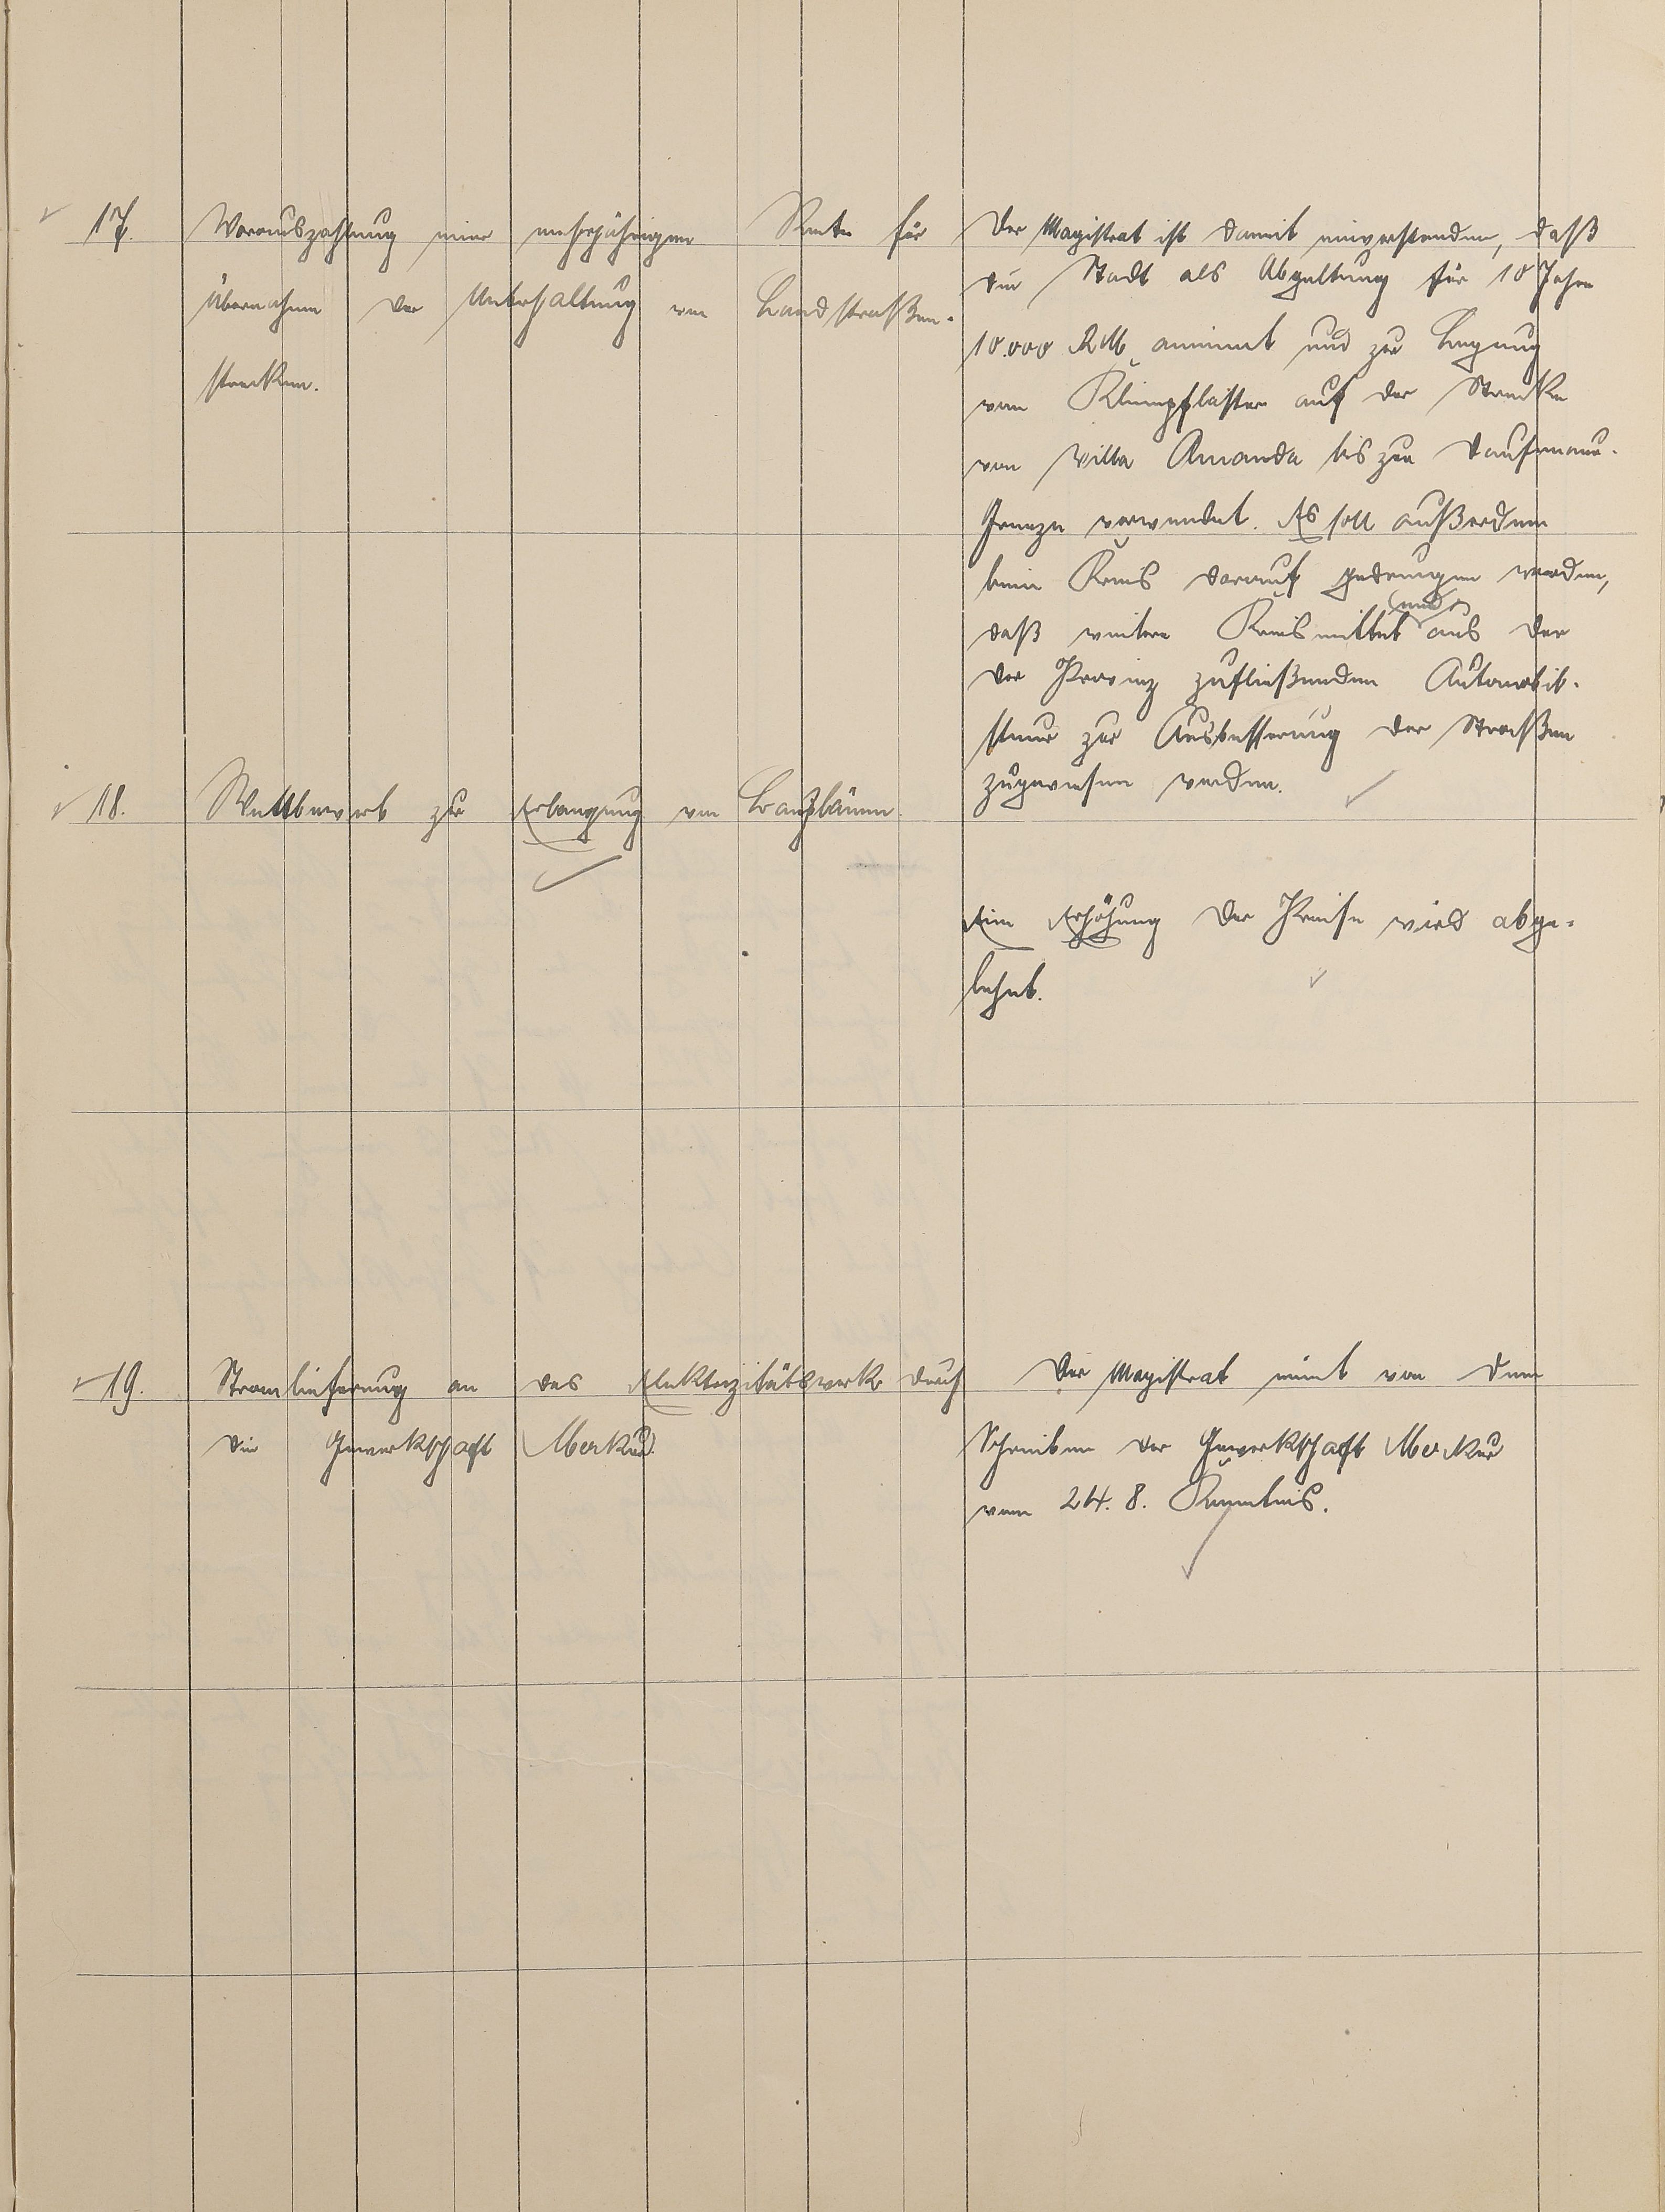 17. Vorauszahlung einer mehrjährigen Rente für
Übernahme der Unterhaltung von Landstraßen-
strecken.
Der Magistrat ist damit einverstanden, daß
die Stadt als Abgeltung für 10 Jahre
10.000 RM annimmt und zur Legung
von Kleinpflaster auf der Strecke
von Villa Amanda bis zur
Grenze verwendet. Es soll außerdem
beim Kreis darauf gedrungen werden,
daß weitere Kreismittel und aus der
der Provinz zufließenden Automobil-
steuer zur Ausbesserung der Straßen
zugewiesen werden.
18. Wettbewerb zur Erlangung von
Eine Erhöhung der Preise wird abge-
lehnt.
19. Stromlieferung an das Elektrizitätswerk durch
die Gewerkschaft Merkur.
Der Magistrat nimt von dem
Schreiben der Gewerkschaft Merkur
vom 24. 8. Kenntnis.